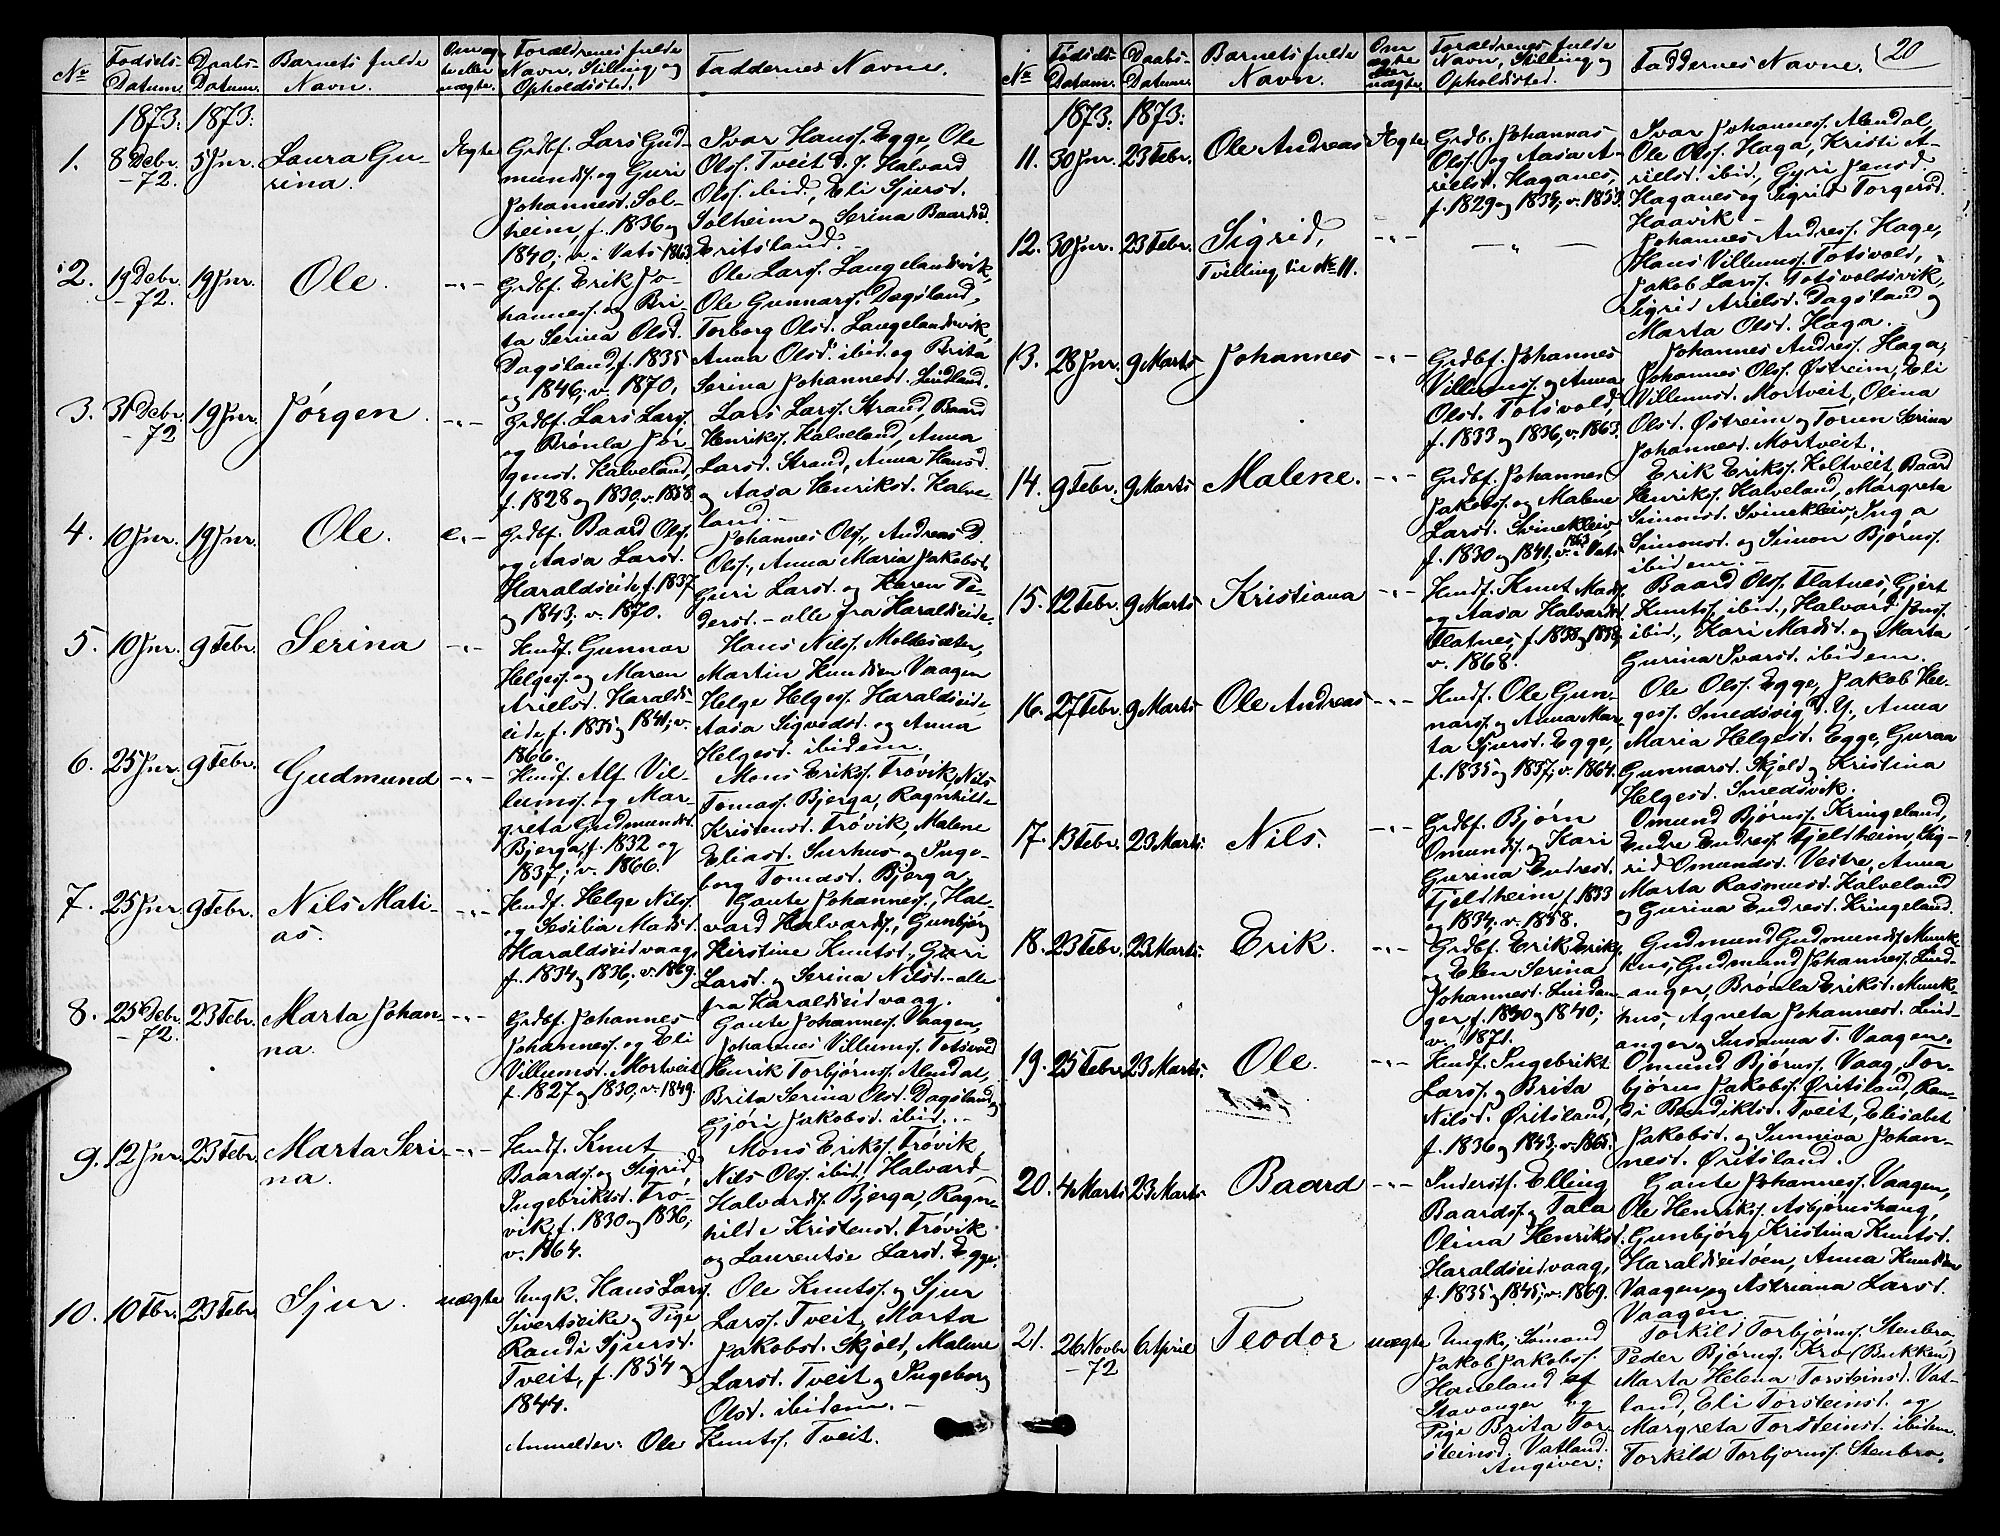 20
No Fødsels- Datum. Daabs- Datum. Barnets fulde Navn. Om ægte eller uægte. Forældrenes fulde Navn, Stilling og Opholdssted. Faddernes Navne.
1873: 1873:
1. 8 Debr. -72. 5 Jnr. Laura Gurina. Ægte
Grdbf. Lars Gud-
munds. og Guri
Johannesd. Sol-
heim, f. 1836 og
1840; v. i Vats 1863.
Ivar Hanss. Egge, Ole
Ols. Tveit d. y. Halvard
Ols. ibid., Eli Sjursd.
Solheim og Serina Baardsd.
Eritsland.
2. 19 Debr. -72. 19 Jnr. Ole. -"-
Grdbf. Erik Jo-
hanness. og Bri-
ta Serina Olsd.
Dagsland, f. 1835
og 1846; v. 1870,
Ole Larss. Langelandsvik,
Ole Gunnars. Dagsland,
Torborg Olsd. Langelandsvik,
Anna Olsd. ibid. og Brita
Serina Johannesd. Lindland.
3. 31 Debr. -72 19 Jnr. Jørgen. -"-
Grdbf. Lars Larss.
og Brønla Jør-
gensd. Kalveland,
f. 1828 og 1830, v. 1858.
Lars Larss. Strand, Baard
Henriks. Kalveland, Anna
Larsd. Strand, Anna Hansd.
og Aasa Henriksd. Kalve-
land.
4. 10 Jnr. 19 Jnr. Ole. -"-
Grdbf. Baard Ols.
og Aasa Larsd.
Haraldseide, f. 1837
og 1843, v. 1870.
Johannes Ols., Andreas D.
Ols., Anna Maria Jakobsd.
Guri Larsd. og Karen Pe-
dersd. - alle fra Haraldseide.
5. 10 Jnr. 9 Febr. Serina -"-
Husf. Gunnar
Helgess. og Maren
Arielsd. Haralds-
eide, f. 1835 og 1841; v.
1866.
Hans Nils. Moldesæter,
Martin Knudsen Vaagen
Helge Helgess. Haraldseide,
Aasa Sigvedsd. og Anna
Helgesd. ibidem.
6. 25 Jnr. 9 Febr. Gudmund -"-
Husf. Alf Vil-
lums. og Mar-
greta Gudmundsd.
Bjerga, f. 1832 og
1837; v. 1866.
Mons Eriks. Trøvik, Nils
Tomass. Bjerga, Ragnhilde
Kristensd. Trøvik, Malene
Eliasd. Surhus og Inge-
borg Tomasd. Bjerga.
7. 25 Jnr. 9 Febr. Nils Matias. -"-
Husf. Helge Nils.
og Sesilia Madsd.
Haraldseidvaag,
f. 1834 og 1836, v. 1869.
Gaute Johanness., Hal-
vard Halvards., Gunbjørg
Kirstine Knutsd., Guri
Larsd. og Serina Nilsd. - alle
fra Haraldseidvaag.
8. 25 Debr. -72. 23 Febr. Marta Johanna. -"-
Grdbf. Johannes
Johanness. og Eli
Villumsd. Mortveit
f. 1827 og 1830; v. 1849.
Gaute Johanness. Vaagen,
Johannes Villums. Totsvold
Henrik Torbjørns. Alendal,
Brita Serina Olsd. Dagsland og
Gjøri Jakobsd. ibid.
9. 12 Jnr. 23 Febr. Marta Serina. -"-
Husf. Knut
Baards. og Sigrid
Ingebriktsd. Trø-
vik, f. 1830 og 1836;
v. 1864.
Mons Eriks. Trøvik,
Nils Ols. ibid., Halvard
Halvards. Bjerga, Ragn-
hilde Kristensd. Trøvik
og Laurentse Larsd. Egge.
10. 10 Fbr. 23 Febr. Sjur. uægte
Ungk. Hans Lars.
Sivertseike og Pige
Randi Sjursd.
Tveit, f. 1854 og
1844.
Ole Knuts. og Sjur
Larss. Tveit, Marta
Jakobsd. Skjold, Malene
Larsd. Tveit og Ingeborg
Olsd. ibidem.
Anmelder: Ole Knuts. Tveit.
No Fødsels- Datum. Daabs- Datum. Barnets fulde Navn. Om ægte eller uægte. Forældrenes fulde Navn, Stilling og Opholdssted. Faddernes Navne.
1873: 1873:
11. 30 Jnr. 23 Febr. Ole Andreas Ægte
Grdb. Johannes
Ols. og Aasa A-
rielsd. Haganes,
f. 1829 og 1834; v. 1853.
Ivar Johanness. Alendal
Ole Ols. Haga, Kristi A-
rielsd. ibid., Gyri Jensd.
Haganes og Sigrid Torgersd.
Haavik
12. 30 Jnr. 23 Febr. Sigrid, Tvilling til No 11. -"-
- " -
Johannes Andreass. Hage,
Hans Villums. Totsvold,
Jakob Larss. Totsvoldsvik,
Sigrid Arielsd. Dagsland og
Marta Olsd. Haga.
13. 28 Jnr. 9 Marts Johannes -"-
Grdbf. Johannes
Villums. og Anna
Olsd. Totsvold,
f. 1833 og 1836, v. 1863.
Johannes Andreass. Haga,
Johannes Ols. Østreim, Eli
Villumsd. Mortveit, Olina
Olsd. Østreim og Torun Serina
Johannesd. Mortveit.
14. 9 Febr. 9 Marts Malene. -"-
Grdbf. Johannes
Jakobs. og Malene
Larsd. Svinekleiv
f. 1830 og 1841, v. i Vats 1863
Erik Eriks. Holtveit, Baard
Henriks. Kalveland, Margreta
Simonsd. Svinekleiv, Inga
Simonsd. og Simon Bjørns.
ibidem.
15. 12 Febr. 9 Marts Kristiana -"-
Husf. Knut Mads.
og Aasa Halvardsd.
Flatnes, f. 1838 og 1838,
v. 1868.
Baard Ols. Flatnes, Gjert
Knuts. ibid., Halvard Jens.
ibid., Kari Madsd. og Marta
Gurina Ivarsd. ibidem.
16. 27 Febr. 9 Marts Ole Andreas -"-
Husf. Ole Gun-
nars. og Anna Mar-
ta Sjursd. Egge,
f. 1835 og 1837; v. 1864.
Ole Ols. Egge, Jakob Hel-
gess. Smedsvig d. y., Anna
Maria Helgesd. Egge, Guraa
Gunnarsd. Skjold og Kristina
Helgesd. Smedsvik.
17. 13 Febr. 23 Marts. Nils. -"-
Grdbf. Bjørn
Omunds. og Kari
Gurina Endresd.
Fjeldheim, f. 1833
og 1834; v. 1858.
Omund Bjørns. Kringeland,
Endre Endress. Fjeldheim, Sig-
rid Omundsd. Vestre, Anna
Marta Rasmusd. Kalveland
og Gurina Endresd. Kringeland.
18. 23 Febr. 23 Marts. Erik. -"-
Grdbf. Erik Eriks.
og Elen Serina
Johannesd. Lindan-
ger, f. 1830 og 1840;
v. 1871.
Gudmund Gudmunds. Munk-
hus, Gudmund Johanness. Lind-
anger, Brønla Eriksd. Munk-
hus, Agneta Johannesd. Lind-
anger og Susanna T. Vaagen.
19. 25 Febr. 23 Marts. Ole. -"-
Husf. Ingebrikt
Larss. og Brita
Nilsd. Øritsland,
f. 1836 og 1843; v. 1865.
Omund Bjørns. Vaag, Tor-
bjørns Jakobs. Øritsland, Ran-
di Bendiktsd. Tveit, Elisabet
Jakobsd. og Sunniva Johan-
nesd. Øritsland.
20. 4 Marts 23 Marts Baard -"-
Inderstf. Elling
Baards. og Tala
Olina Henriksd.
Haraldseidvaag,
f. 1835 og 1845; v. 1869.
Gaute Johanness. Vaagen,
Ole Henriks. Asbjørnshaug,
Gunbjørg Kristina Knutsd.
Haraldseidøen, Anna Knudsen
Vaagen og Astriana Larsd.
Vaagen
21. 26 Novbr. -72 6 April Teodor uægte
Ungk., Sømand
Jakob Jakobs.
Haneland af
Stavanger og
Pige Brita Tor-
steinsd. Vatland.
Angiver:
Torkild Torbjørns. Stenbro,
Peder Bjørns. Kro (Bukken)
Marta Helena Torsteinsd. Vat-
land, Eli Torsteinsd. og
Margreta Torsteinsd. ibidem.
Torkild Torbjørns. Stenbro.